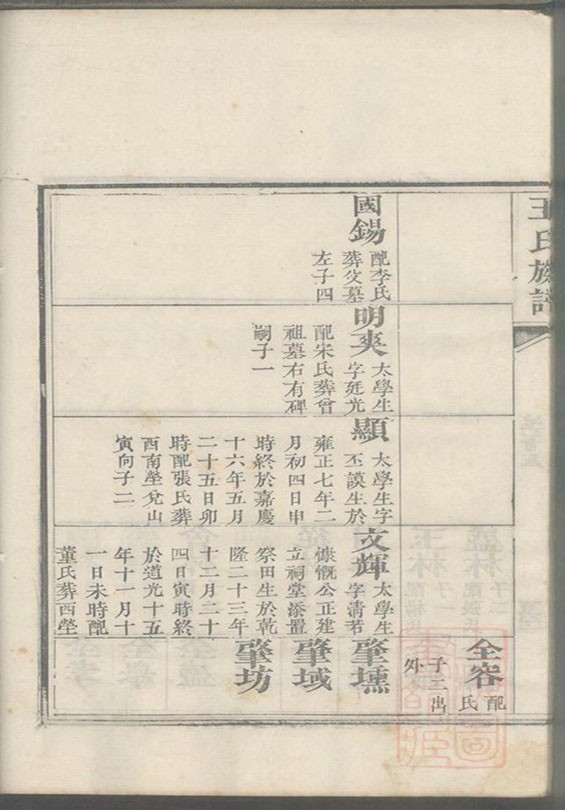 王氏族譜
全容
配
氏
子二出
外
國錫
配李氏
葬父墓
左子四
明爽
太學生
字廷光
配宋氏葬曾
祖墓右有碑
嗣子一
顯
太學生字
丕謨生於
雍正七年二
月初四日申
時終於嘉慶
十六年五月
二十五日卯
時配張氏葬
西南塋兌山
寅向子二
文輝
太學生
字清若
慷慨公正建
立祠堂添置
祭田生於乾
隆二十三年
十二月二十
四日寅時終
於道光十五
年十一月十
一日未時配
董氏葬西塋
肇壎
肇域
肇坊